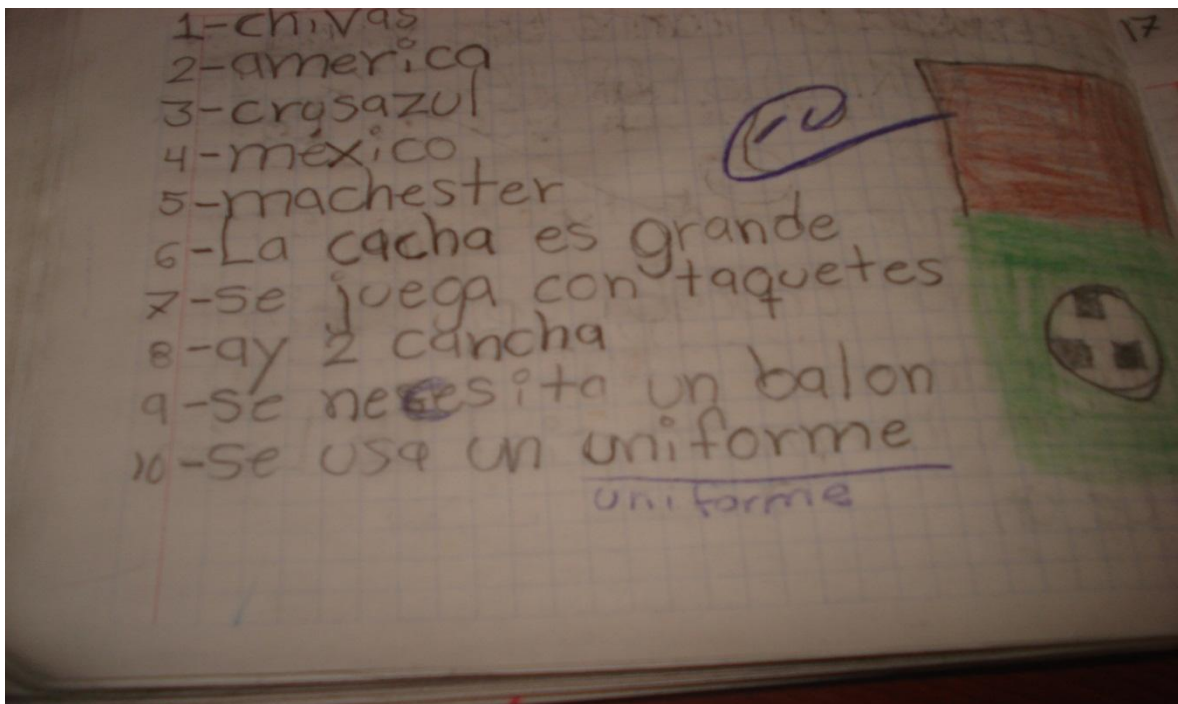 1-chivas
17
2-america
3-crusazul
4-méxico
5-machester
6-La cacha es grande
7-se juega con taquetes
8-ay 2 cancha
9-se necesita un balon
10-se usa un uniforme
uniforme